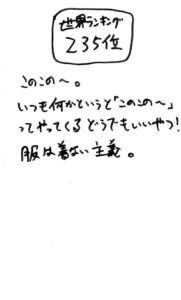 世界ランキング
235位
このこの〜。
いつも何かというと「このこの〜」
ってやってくる どうでもいいやつ!
服は着ない主義。